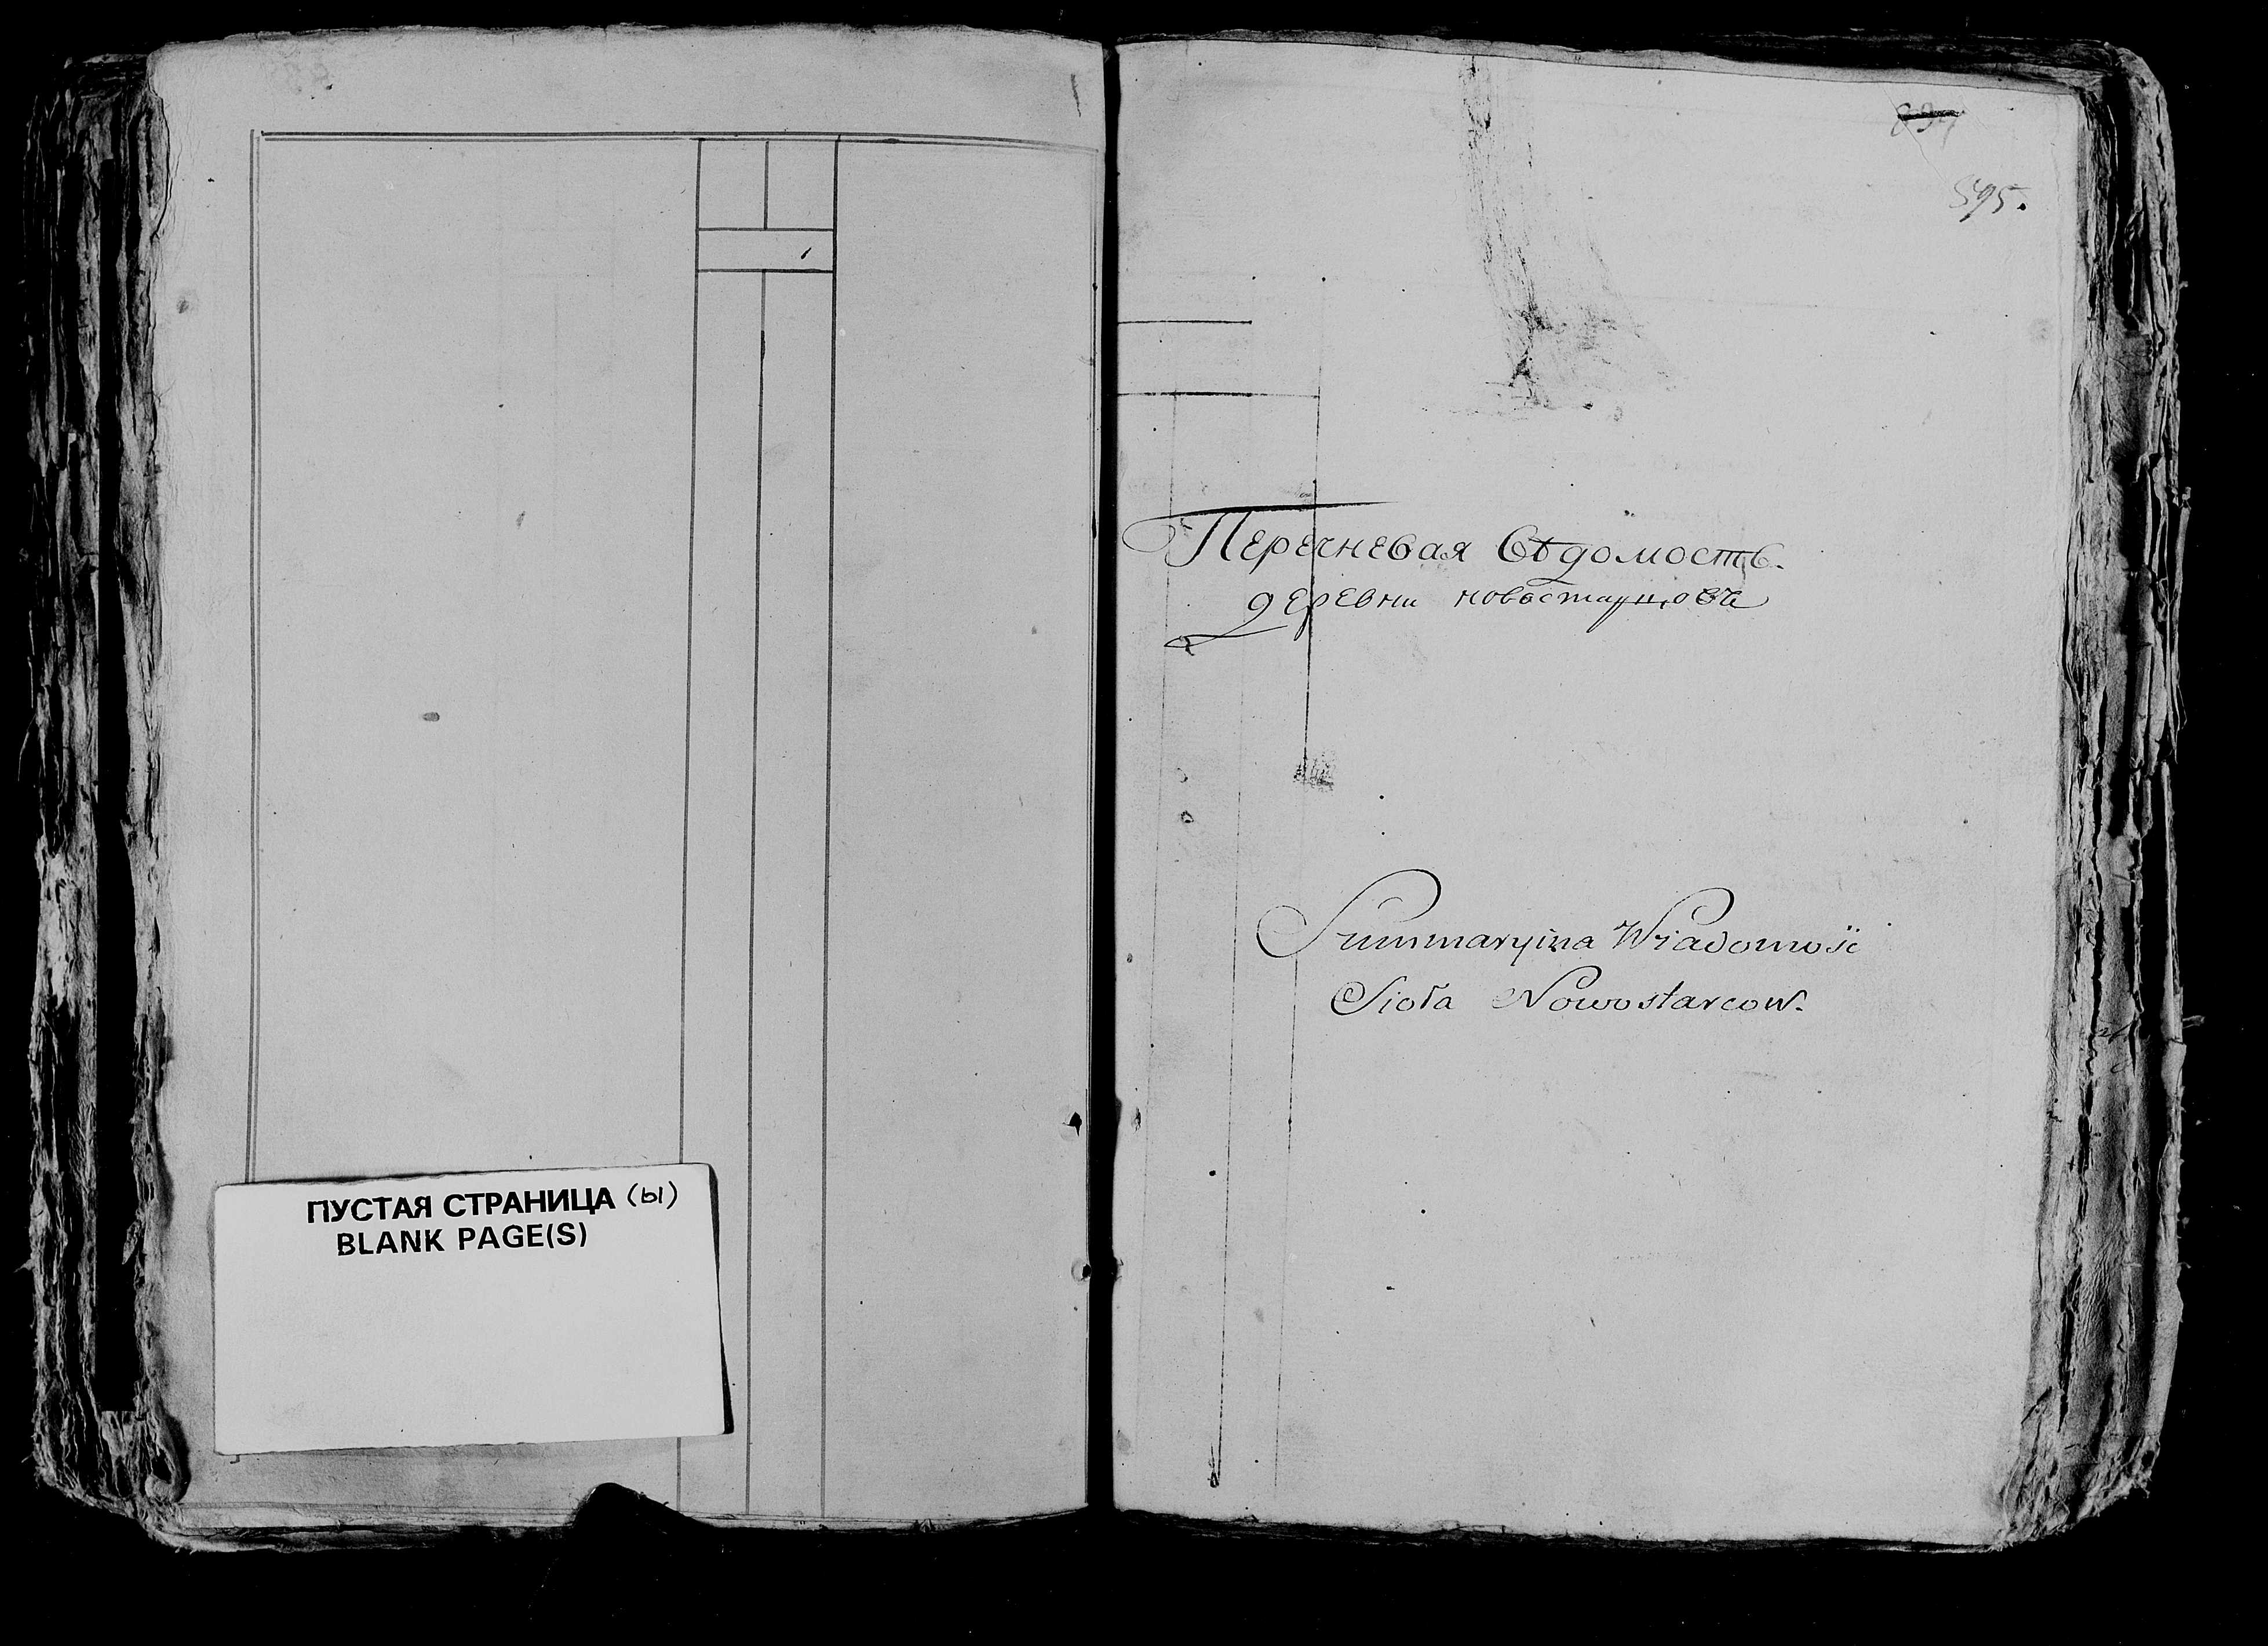 ПУСТАЯ СТРАНИЦА (ы)
BLANK PAGE(S)
595.
Перечневая вѣдомость.
деревни новостарцовъ
Summaryina Wiadomość
Sioła Nowostarcow.